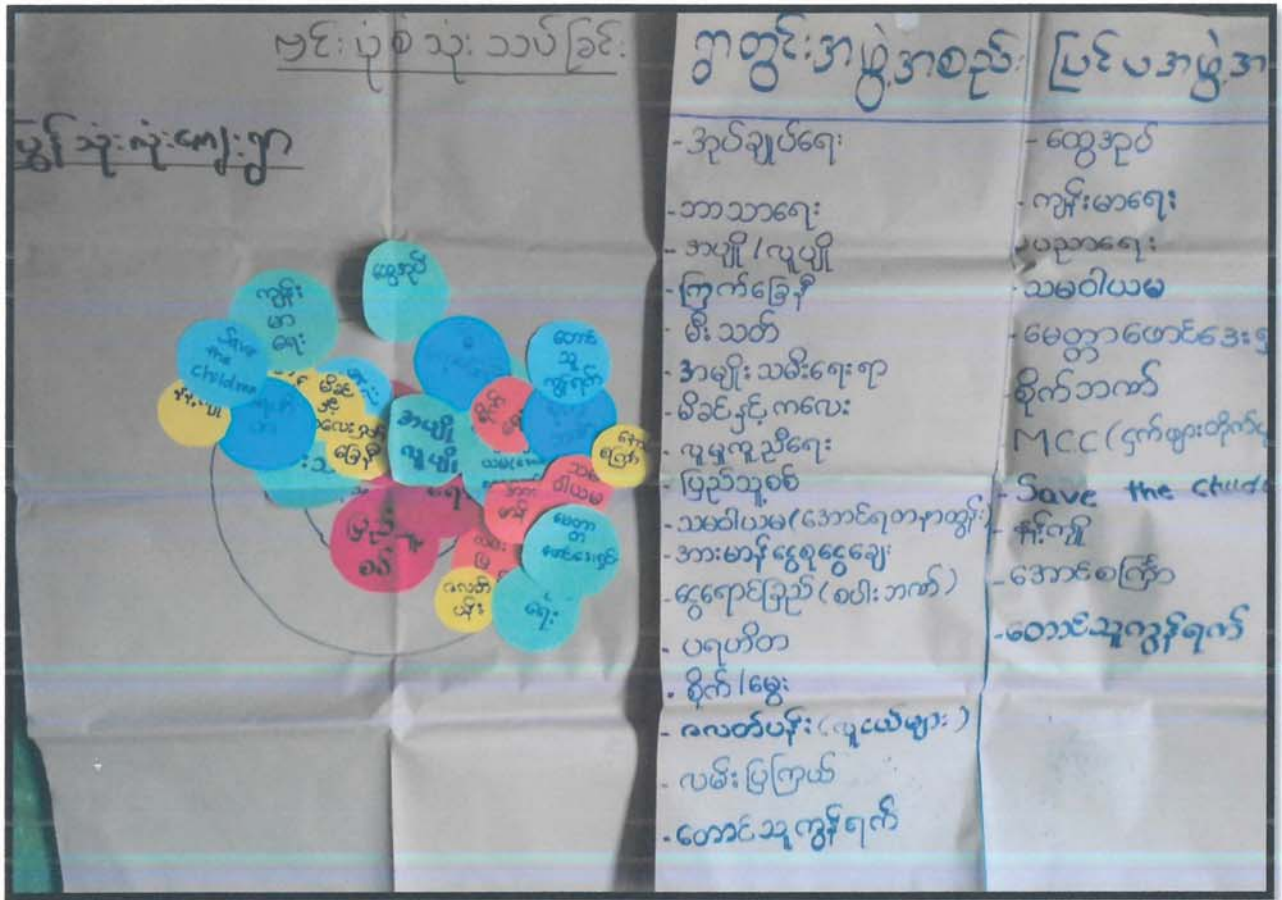 ဗင်းပုံစံသုံးသပ်ခြင်း
မွှန်သုံးလုံးကျေးရွာ
ထွေအုပ်
ကျန်း
မာ
ရေး
Save
the
children
တောင်
သူ
ကွန်ရက်
မိခင်
နှင့်
ကလေး
ကြက်
ခြေနီ
အပျို
လူပျို
စိုက်
သမ
ဝါယမ
မေတ္တာ
ပြည်သူ့
စစ်
ဇလတ်
ပန်း
ရေး
ရွာတွင်းအဖွဲ့အစည်း
-အုပ်ချုပ်ရေး
-ဘာသာရေး
-အပျို/လူပျို
-ကြက်ခြေနီ
-မီးသတ်
-အမျိုးသမီးရေးရာ
-မိခင်နှင့်ကလေး
-လူမှုကူညီရေး
-ပြည်သူ့စစ်
-သမဝါယမ(အောင်ရတနာထွန်း)
-အားမာန်ငွေစုငွေချေး
-ငွေရောင်ခြည်(စပါးဘဏ်)
-ပရဟိတ
-စိုက်/မွေး
-ဇလတ်ပန်း(လူငယ်များ)
-လမ်းပြကြယ်
-တောင်သူကွန်ရက်
ပြင်ပအဖွဲ့အ
-ထွေအုပ်
-ကျန်းမာရေး
-ပညာရေး
-သမဝါယမ
-မေတ္တာဖောင်ဒေး
-စိုက်ဘဏ်
MCC(ငှက်ဖျားတိုက်
-Save the child
-နှံ့ကျို
-အောင်စကြာ
-တောင်သူကွန်ရက်